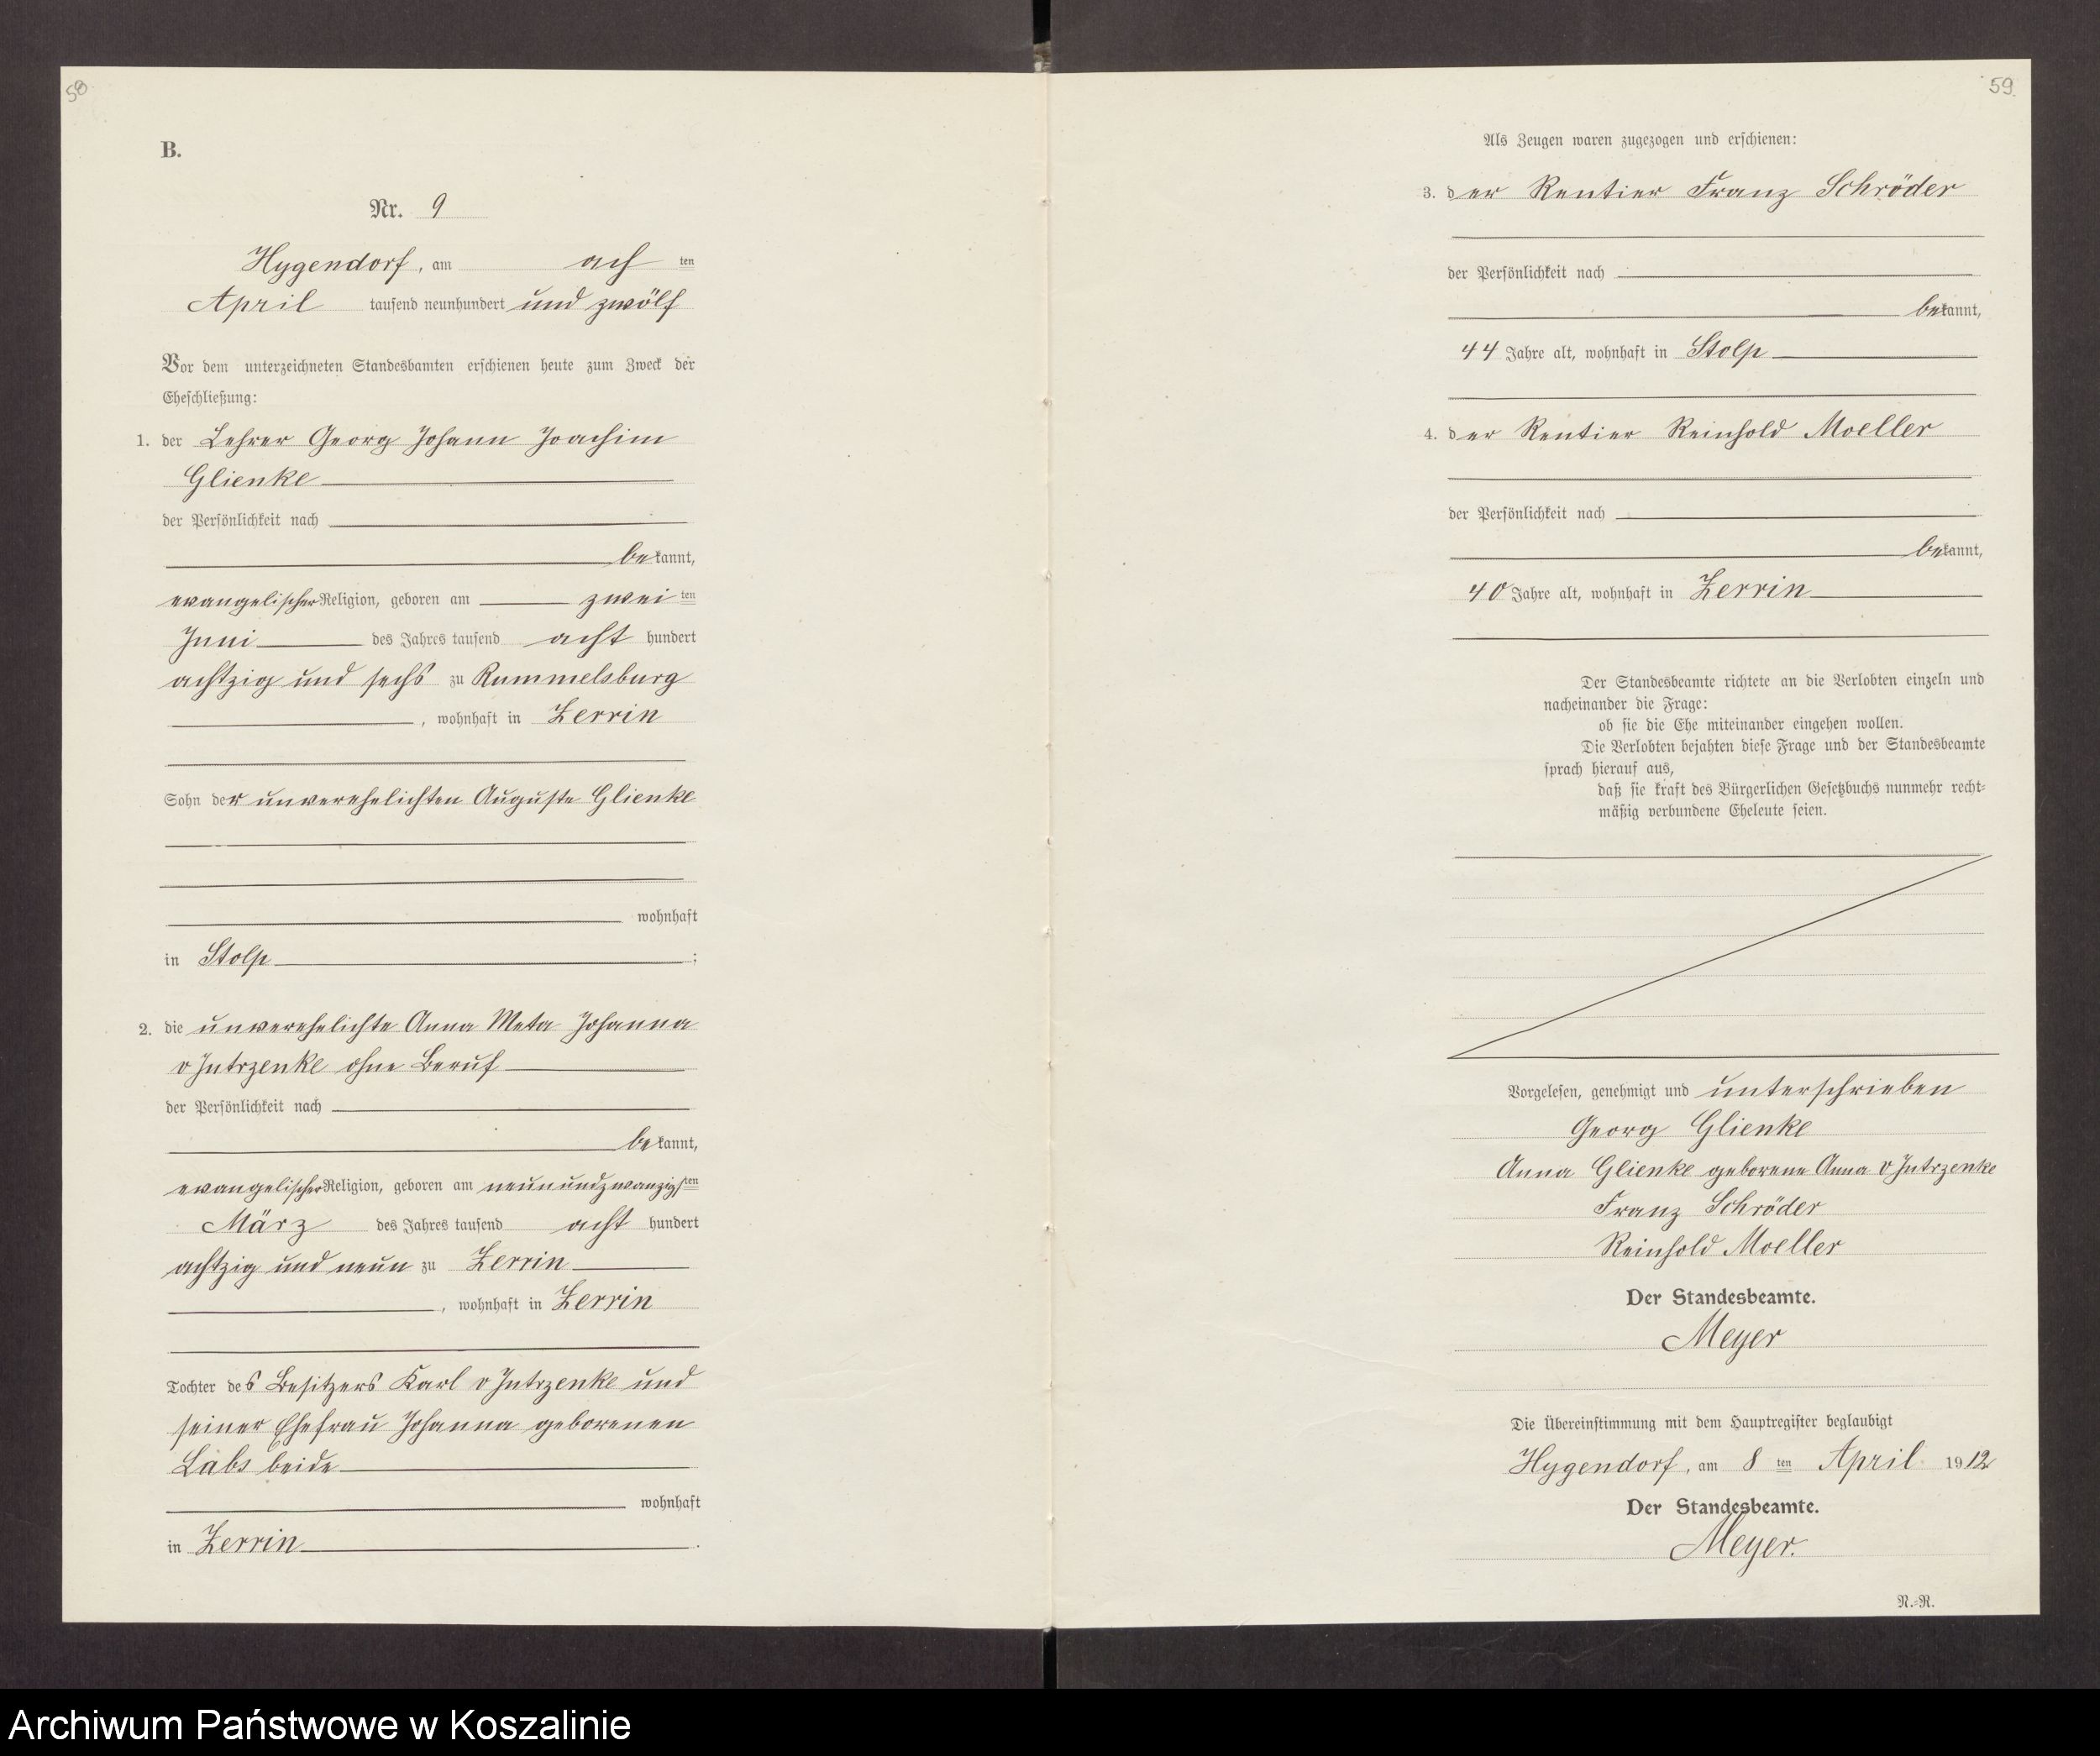 58
B.
Nr. 9
Hygendorf, am ach ten
April tausend neunhundert und zwölf
Vor dem unterzeichneten Standesbamten erschienen heute zum Zweck der
Eheschließung:
1. der Lehrer Georg Johann Joachim
Glienke
der Persönlichkeit nach
bekannt,
evangelischer Religion, geboren am zwei ten
Juni des Jahres tausend acht hundert
achtzig und sechs zu Rummelsburg
, wohnhaft in Zerrin
Sohn der unverehelichten Auguste Glienke
wohnhaft
in Stolp ;
2. die unverehelichte Anna Meta Johanna
v Jutrzenke ohne Beruf
der Persönlichkeit nach
bekannt,
evangelischer Religion, geboren am neunundzwanzigsten
März des Jahres tausend acht hundert
achtzig und neun zu Zerrin
, wohnhaft in Zerrin
Tochter des Besitzers Karl v Jutrzenke und
seiner Ehefrau Johanna geborenen
Labs beide
wohnhaft
in Zerrin .
59
Als Zeugen waren zugezogen und erschienen:
3. der Rentier Franz Schröder
der Persönlichkeit nach
bekannt,
44 Jahre alt, wohnhaft in Stolp
4. der Rentier Reinhold Moeller
der Persönlichkeit nach
bekannt,
40 Jahre alt, wohnhaft in Zerrin
Der Standesbeamte richtete an die Verlobten einzeln und
nacheinander die Frage:
ob sie die Ehe miteinander eingehen wollen.
Die Verlobten bejahten diese Frage und der Standesbeamte
sprach hierauf aus,
daß sie kraft des Bürgerlichen Gesetzbuchs nunmehr recht-
mäßig verbundene Eheleute seien.
Vorgelesen, genehmigt und unterschrieben
Georg Glienke
Anna Glienke geborene Anna v Jutrzenke
Franz Schröder
Reinhold Moeller
Der Standesbeamte.
Meyer
Die Übereinstimmung mit dem Hauptregister beglaubigt
Hygendorf, am 8 ten April 1912
Der Standesbeamte.
Meyer.
N.-R.
Archiwum Państwowe w Koszalinie